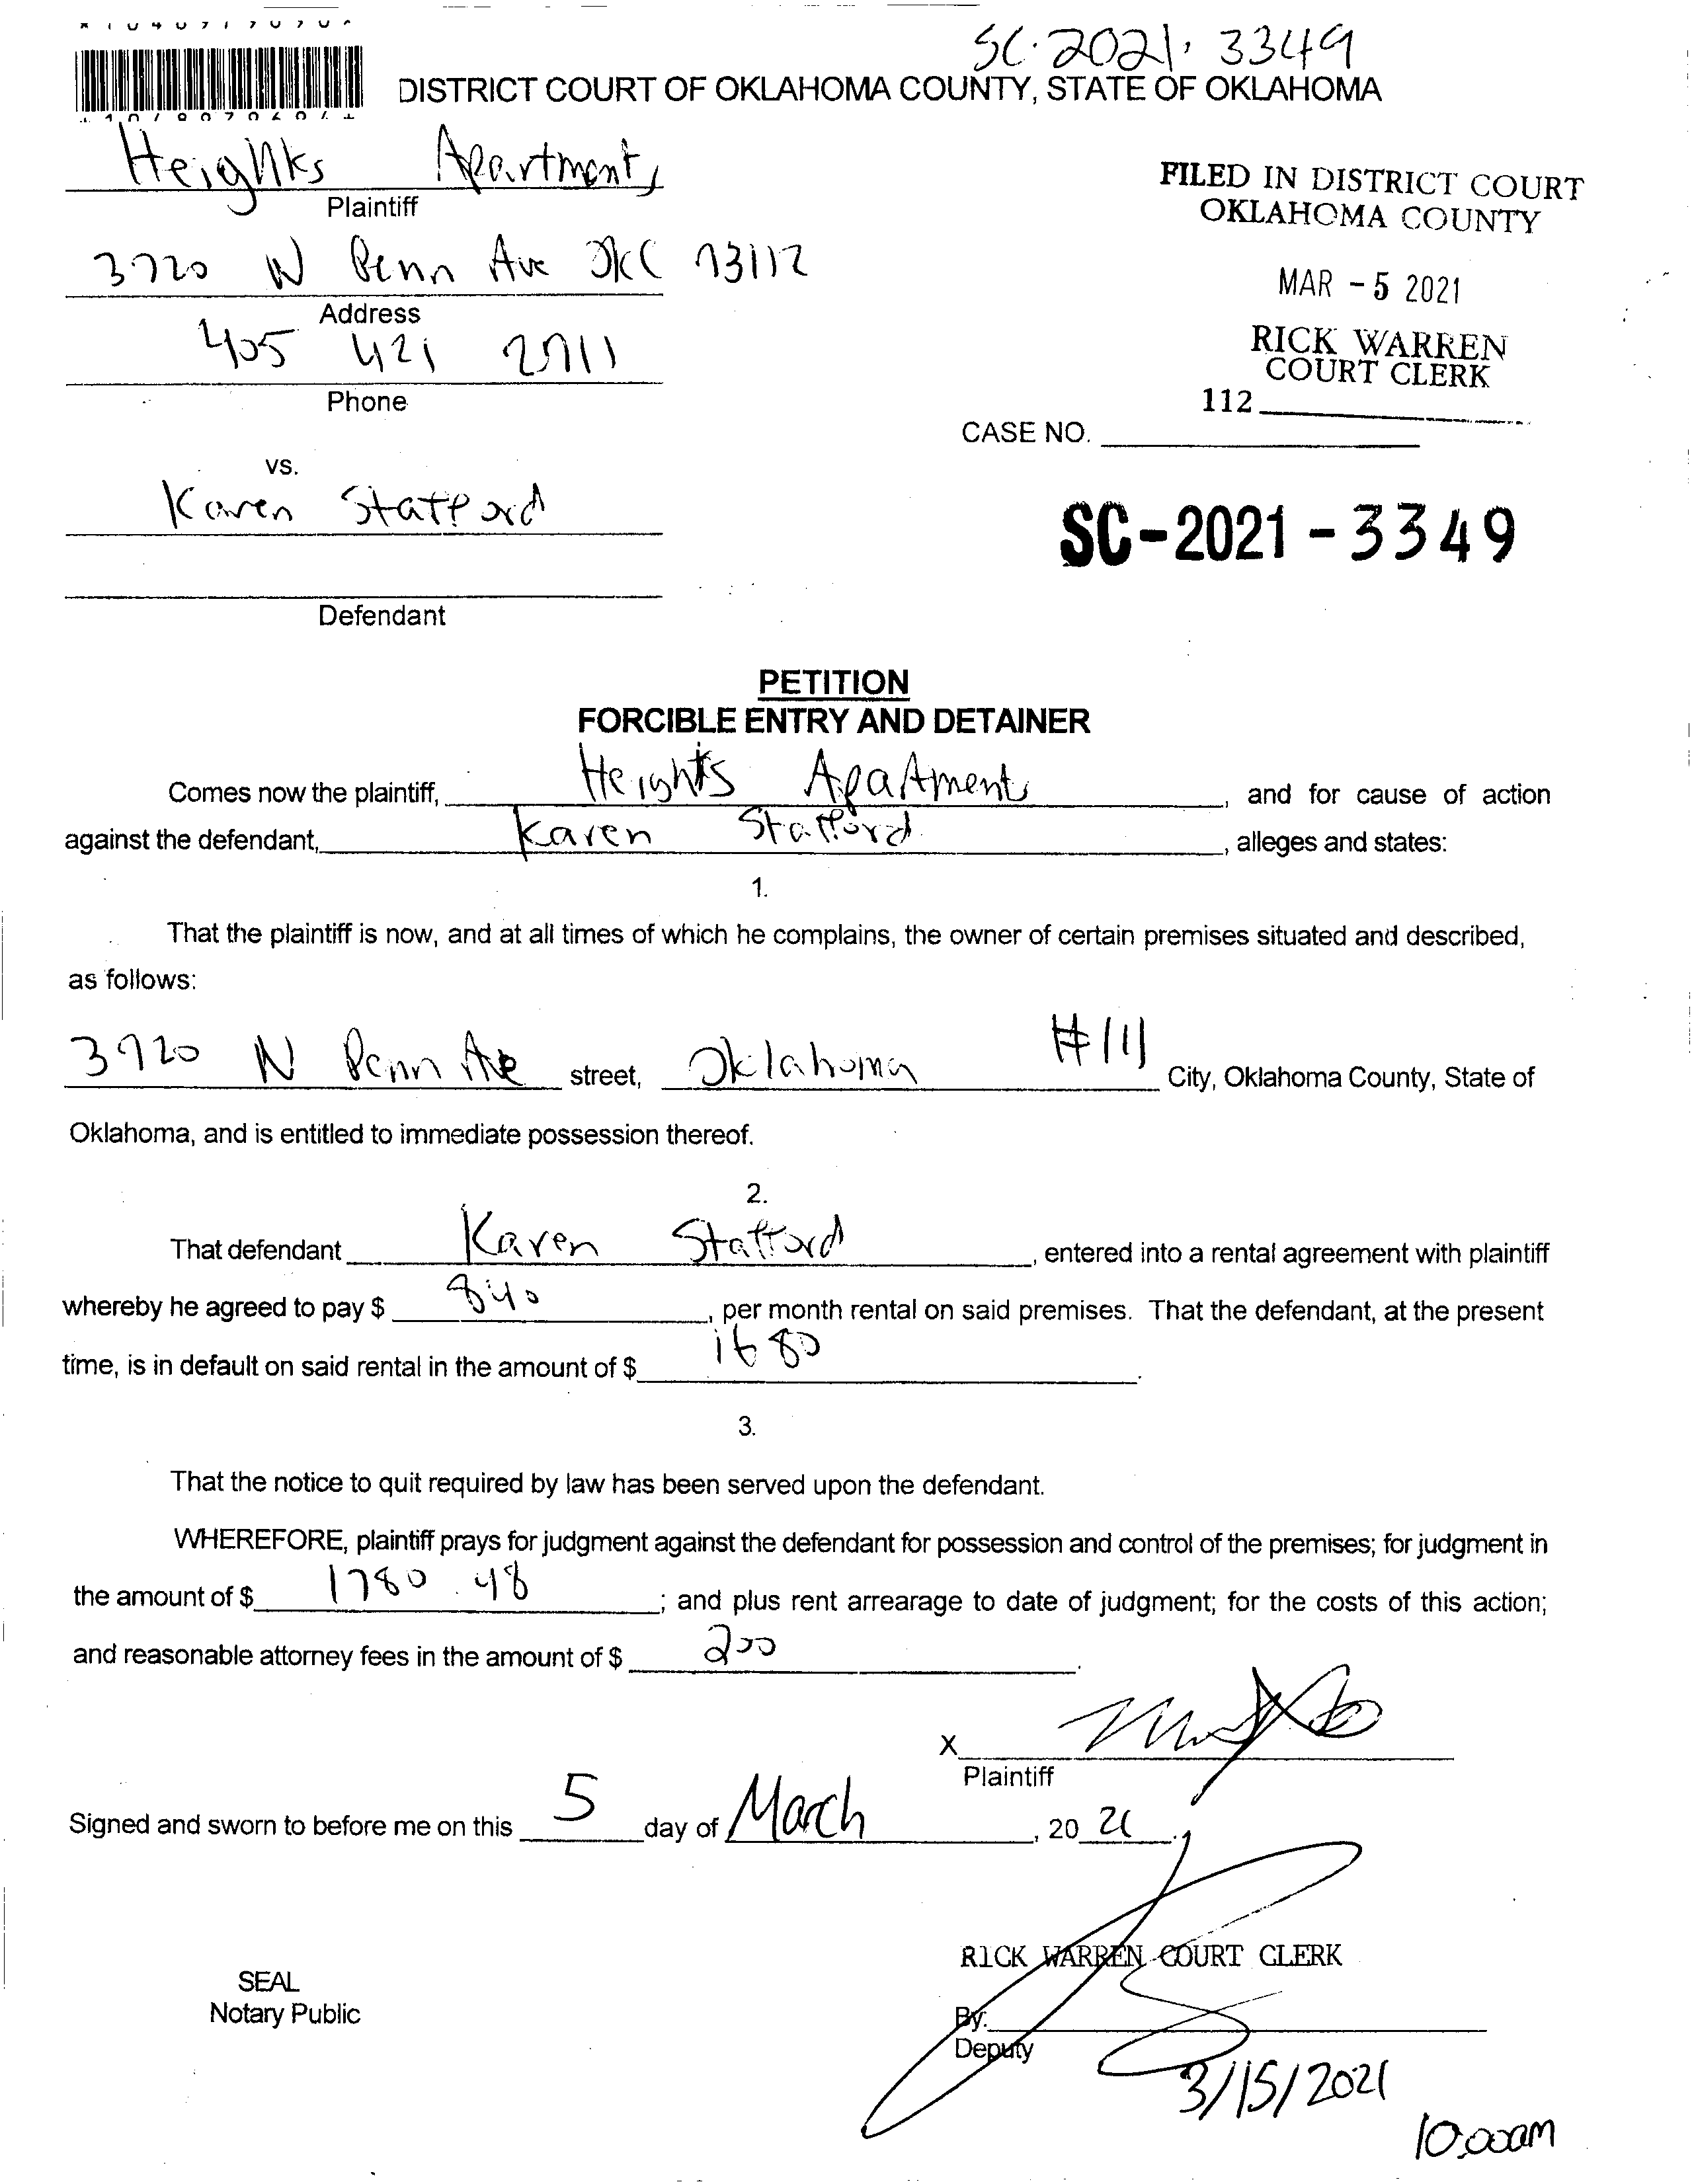 SC-2021-3349
DISTRICT COURT OF OKLAHOMA COUNTY, STATE OF OKLAHOMA
Heights Apartments
Plaintiff
3720 N Penn Ave OKC 73112
Address
405 421 2711
Phone
FILED IN DISTRICT COURT
OKLAHOMA COUNTY
MAR - 5 2021
RICK WARREN
COURT CLERK
112
CASE NO.
SC-2021-3349
vs.
Karen Stafford
Defendant
PETITION
FORCIBLE ENTRY AND DETAINER
Comes now the plaintiff, Heights Apartments, and for cause of action
against the defendant, Karen Stafford, alleges and states:
1.
That the plaintiff is now, and at all times of which he complains, the owner of certain premises situated and described,
as follows:
3720 N Penn Ave street, Oklahoma #111 City, Oklahoma County, State of
Oklahoma, and is entitled to immediate possession thereof.
2.
That defendant Karen Stafford, entered into a rental agreement with plaintiff
whereby he agreed to pay $ 840, per month rental on said premises. That the defendant, at the present
time, is in default on said rental in the amount of $ 1680.
3.
That the notice to quit required by law has been served upon the defendant.
WHEREFORE, plaintiff prays for judgment against the defendant for possession and control of the premises; for judgment in
the amount of $ 1780.48; and plus rent arrearage to date of judgment; for the costs of this action;
and reasonable attorney fees in the amount of $ 200.
X
Plaintiff
Signed and sworn to before me on this 5 day of March, 2021.
RICK WARREN COURT CLERK
SEAL
Notary Public
By:
Deputy
3/15/2021
10:00am